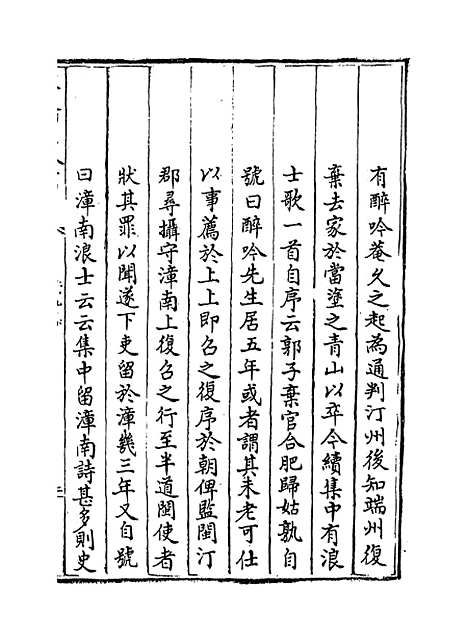 有醉吟菴久之起為通判汀州後知端州復
棄去家於當塗之青山以卒今續集中有浪
士歌一首自序云郭子棄官合肥歸姑孰自
號曰醉吟先生居五年或者謂其未老可仕
以事薦於上上即召之復序於朝俾監閩汀
郡尋攝守漳南上復召之行至半道閩使者
狀其罪以聞遂下吏留於漳幾三年又自號
曰漳南浪士云云集中留漳南詩甚多則史